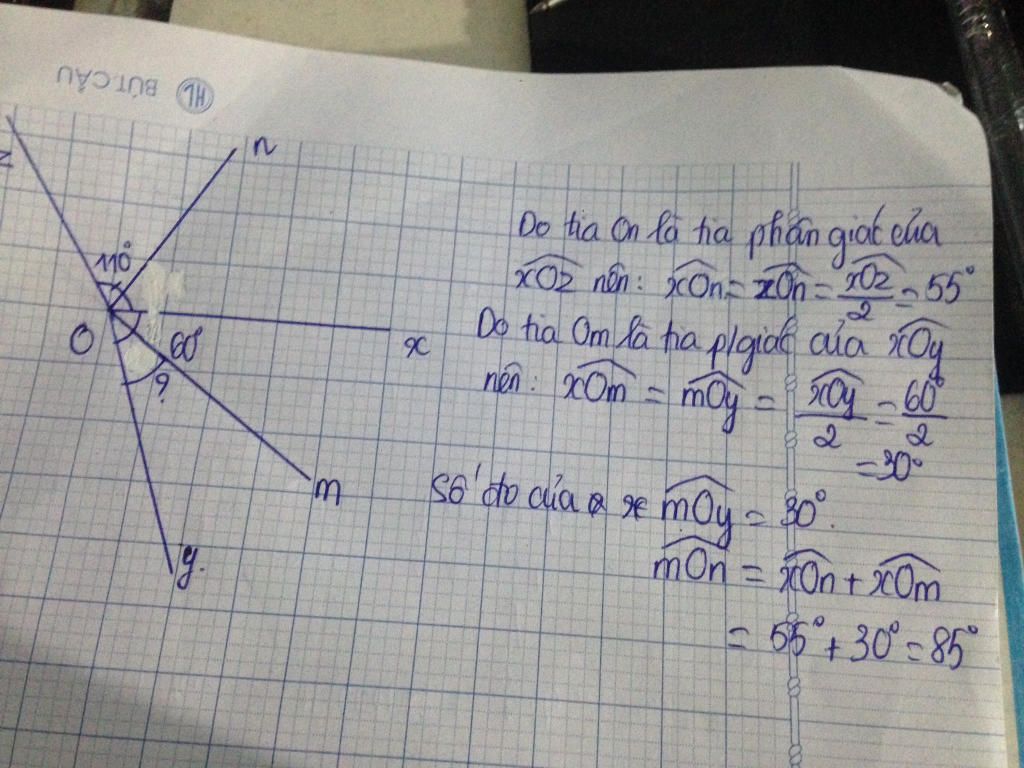 HL BÚT CẦU
z
n
110°
O
60°
x
?
m
y.
Do tia On là tia phân giác của
xOz nên: xOn = zOn = xOz/2 = 55°
Do tia Om là tia p/giác của xOy
nên: xOm = mOy = xOy/2 = 60°/2
= 30°
Số đo của mOy = 30°.
mOn = xOn + xOm
= 55° + 30° = 85°